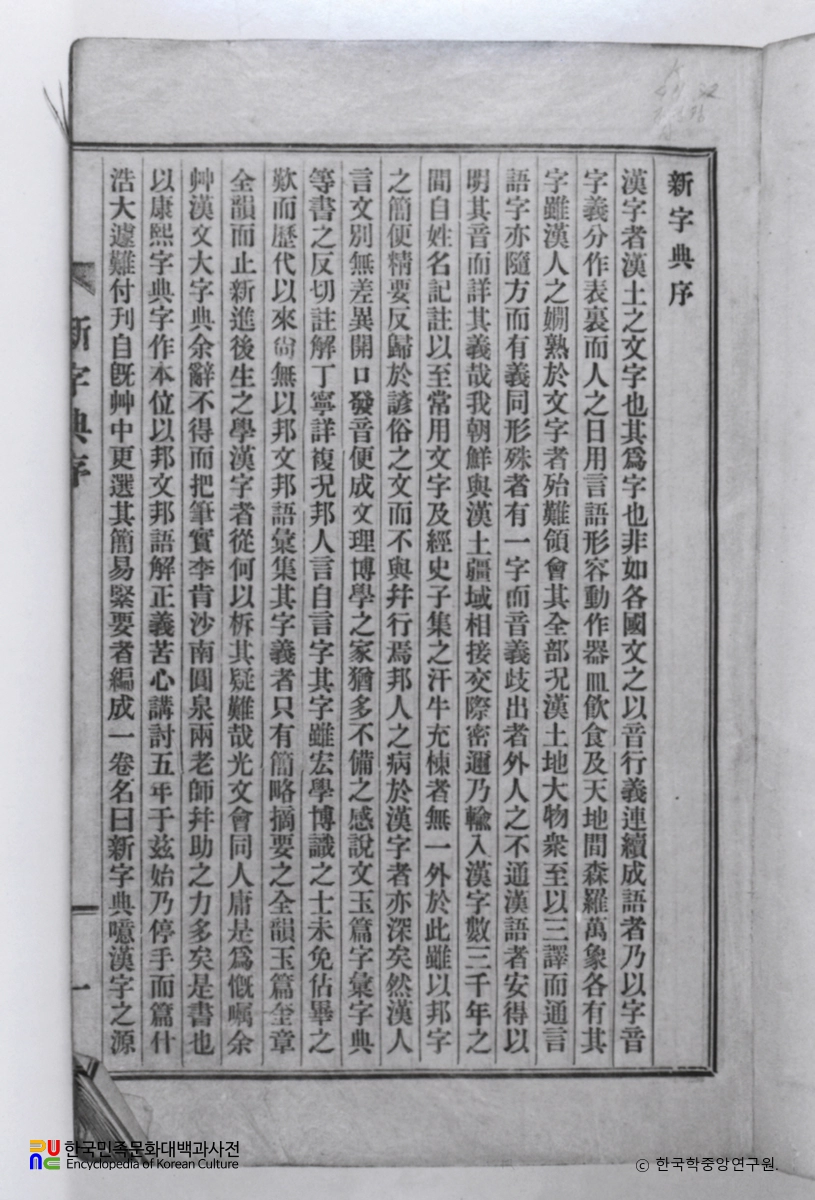 新字典序
漢字者漢土之文字也其爲字也非如各國文之以音行義連續成語者乃以字音
字義分作表裏而人之日用言語形容動作器皿飮食及天地間森羅萬象各有其
字雖漢人之嫺熟於文字者殆難領會其全部况漢土地大物衆至以三譯而通言
語字亦隨方而有義同形殊者有一字而音義歧出者外人之不通漢語者安得以
明其音而詳其義哉我朝鮮與漢土疆域相接交際密邇乃輸入漢字數三千年之
間自姓名記註以至常用文字及經史子集之汗牛充棟者無一外於此雖以邦字
之簡便精要反歸於諺俗之文而不與幷行焉邦人之病於漢字者亦深矣然漢人
言文別無差異開口發音便成文理博學之家猶多不備之感說文玉篇字彙字典
等書之反切註解丁寧詳複况邦人言自言字其字雖宏學博識之士未免佔畢之
歎而歷代以來尙無以邦文邦語彙集其字義者只有簡略摘要之全韻玉篇奎章
全韻而止新進後生之學漢字者從何以柝其疑難哉光文會同人庸是爲慨嘱余
艸漢文大字典余辭不得而把筆實李肯沙南圓泉兩老師幷助之力多矣是書也
以康熙字典字作本位以邦文邦語解正義苦心講討五年于玆始乃停手而篇什
浩大遽難付刊自旣艸中更選其簡易緊要者編成一卷名曰新字典噫漢字之源
新字典序
一
한국민족문화대백과사전
Encyclopedia of Korean Culture
© 한국학중앙연구원.